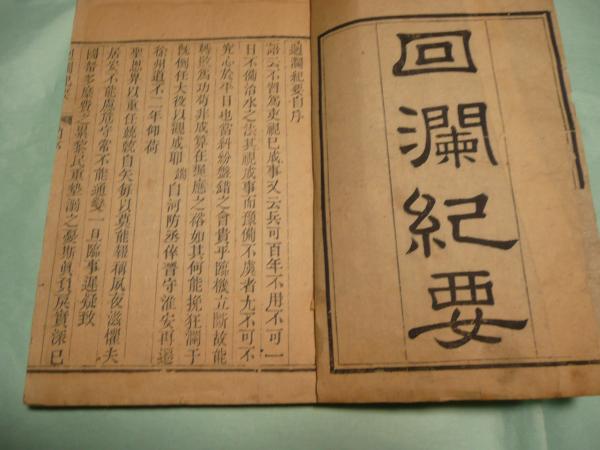 回瀾紀要
迴瀾紀要自序
語云不習爲吏視已成事又云兵可百年不用不可一
日不備治水之法其視成事而豫備不虞者尤不可不
究心於平日也當糾紛盤錯之會貴乎臨機立斷故能
轉敗爲功苟非成算在握應之裕如其何能挽狂瀾于
既倒任大役以觀成耶端自河防丞倅晉守淮安再遷
徐州道不二年仰荷
聖恩畀以重任兢兢自矢每以莫能報稱夙夜滋懼夫
居安不能慮危守常不能通變一旦臨事遲疑致
國帑多糜費之虞黎民重墊溺之憂斯眞負戾實深已